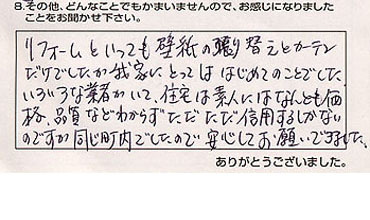 8.その他、どんなことでもかまいませんので、お感じになりました
ことをお聞かせ下さい。
リフォームといっても壁紙の張り替えとカーテン
だけでしたが我家にとっては はじめてのことでした
いろいろな業者がいて、住宅は素人にはなんとも価
格、品質などわからずただただ信用するしかない
のですが同じ町内でしたので安心してお願いできました。
ありがとうございました。